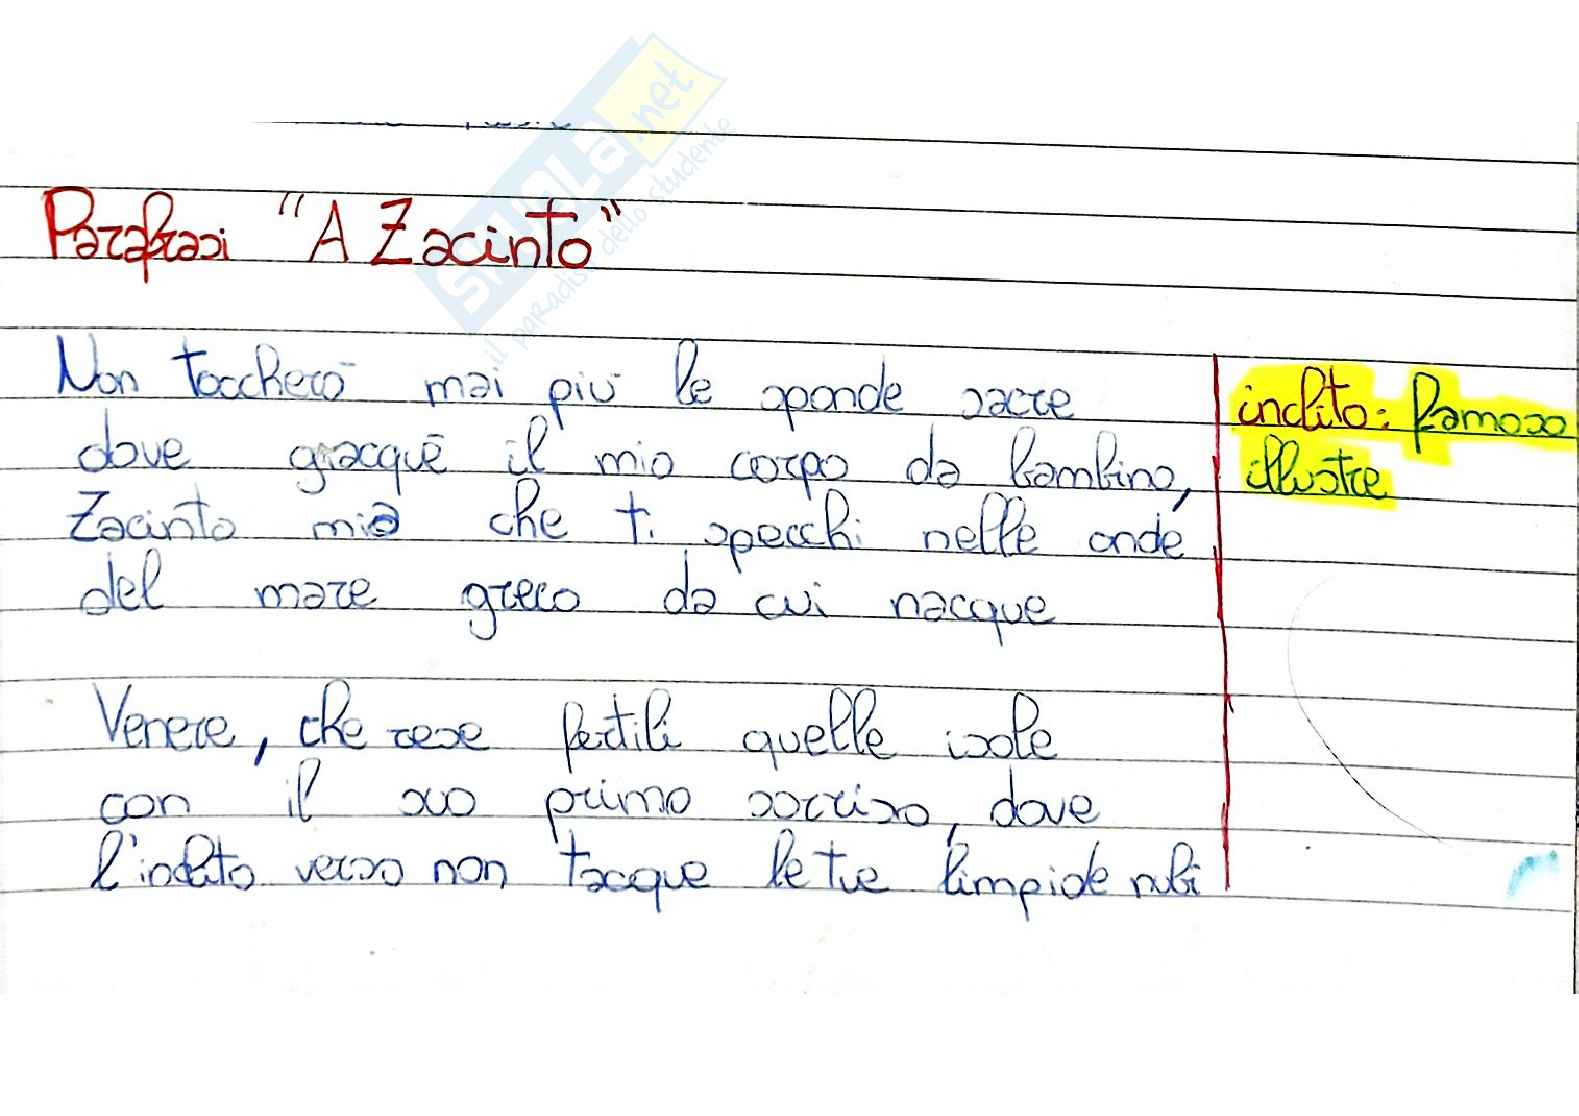 Parafrasi "A Zacinto"
Non toccherò mai più le sponde sacre
dove giacque il mio corpo da bambino,
Zacinto mia che ti specchi nelle onde
del mare greco da cui nacque
Venere, che rese fertili quelle isole
con il suo primo sorriso, dove
l'inclito verso non tacque le tue limpide nubi
inclito: famoso
illustre
SKUOLA.net
il paradiso dello studente